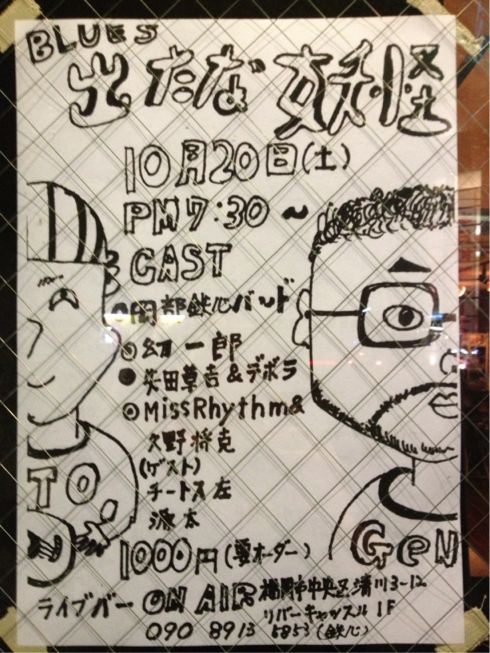 BLUES
出たな妖怪
10月20日(土)
PM7:30〜
CAST
◎岡部鉄心バンド
◎幻一郎
●安田尊吉&デボラ
◎MissRhythm&
久野将克
(ゲスト)
チートス左
源太
1000円(要オーダー)
TO
GeN
ライブバー ON AIR 福岡市中央区清川3-12
リバーキャッスル1F
090 8913 5853(鉄心)